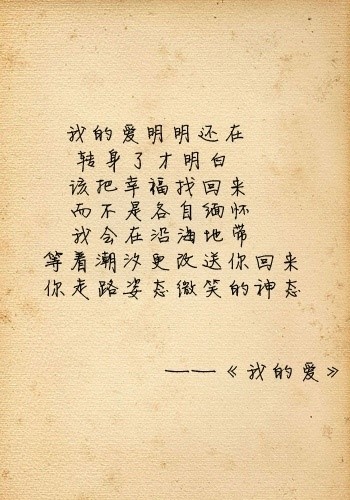 我的爱明明还在
转身了才明白
该把幸福找回来
而不是各自缅怀
我会在沿海地带
等着潮汐更改送你回来
你走路姿态微笑的神态
——《我的爱》